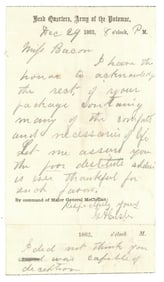 Head Quarters, Army of the Potomac,
Dec 29 1862, 8 o'clock, P M.
Miss Bacon
I have the
honor to acknowledge
the rect of your
package containing
many of the comforts
and necessaries of life
Let me assure you
the poor destitute soldier
is ever thankful for
such favors.
By command of Major General McClellan:
Respectfully yours
186 , o'clock, M.
I did not think you
was capable of
deception